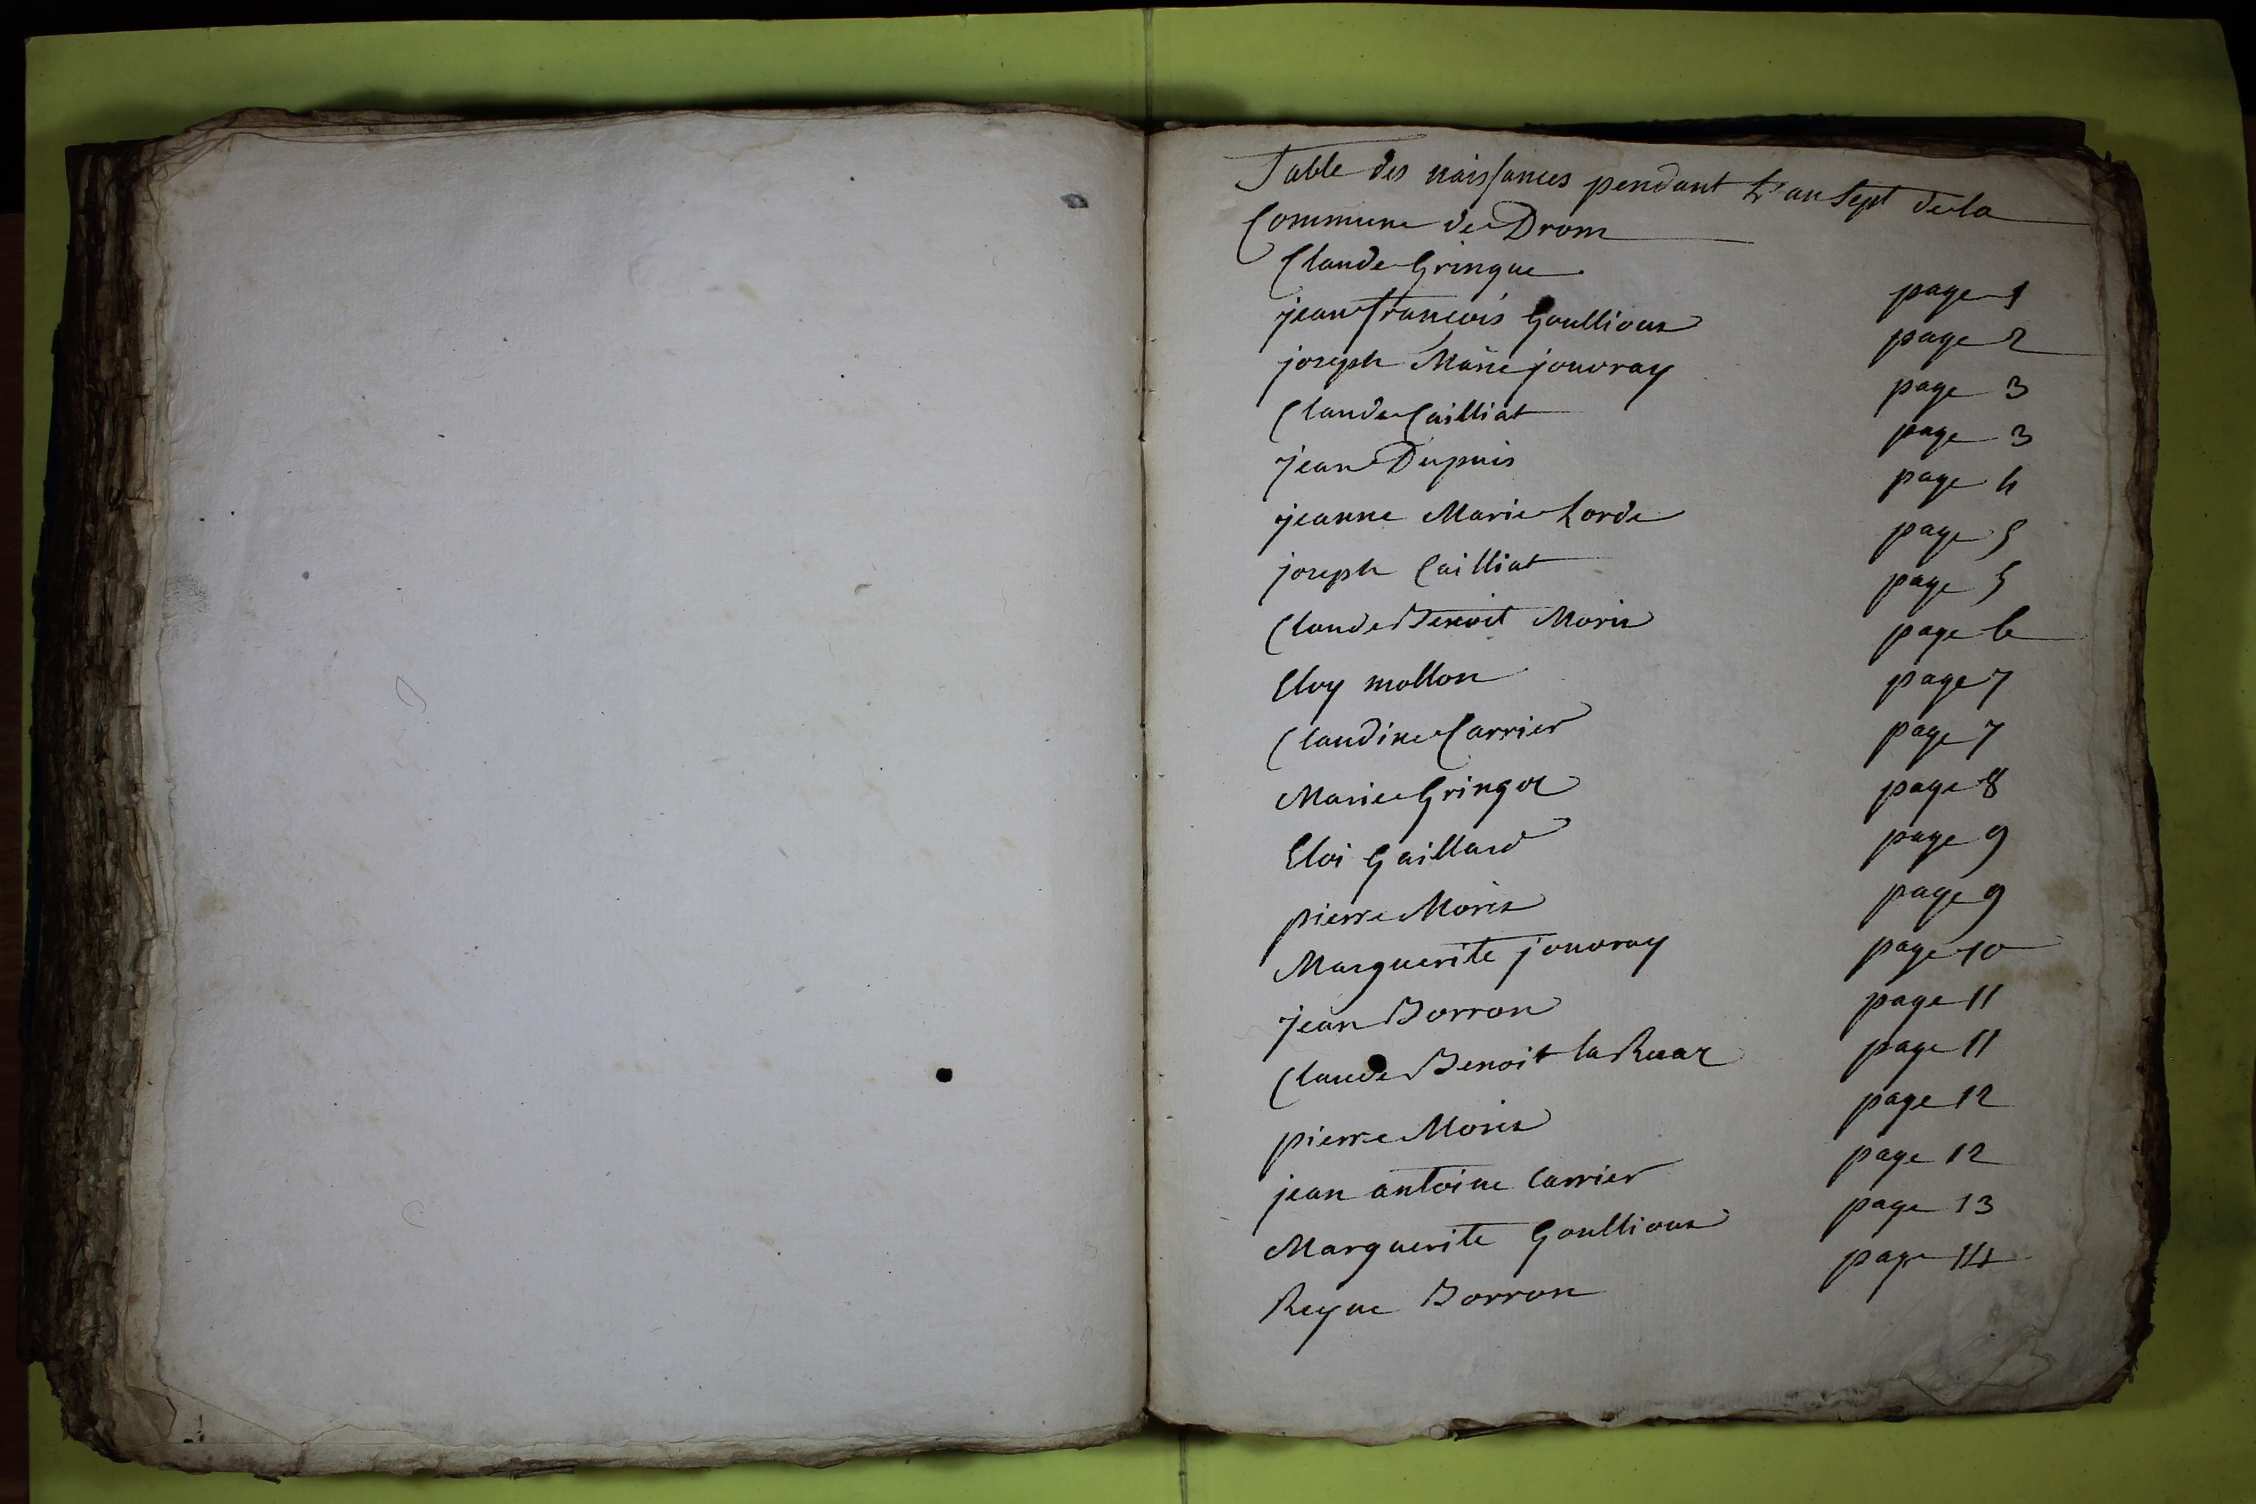 Table des naissances pendant L'an sept de la
Commune de Drom
Claude Gringue page 1
jean françois Goullioux page 2
joseph Marie jouvray page 3
Claude Cailliat page 3
jean Dupuis page 4
jeanne Marie Lorde page 5
joseph Cailliat page 5
Claude Benoit Moris page 6
Eloy mollon page 7
Claudine Carrier page 7
Marie Gringoz page 8
Eloi Gaillard page 9
pierre Morix page 9
Marguerite jouvray page 10
jean Borron page 11
Claude Benoit la Ruaz page 11
pierre Morix page 12
jean antoine carrier page 12
Marguerite Goullioux page 13
Reyne Borron page 14